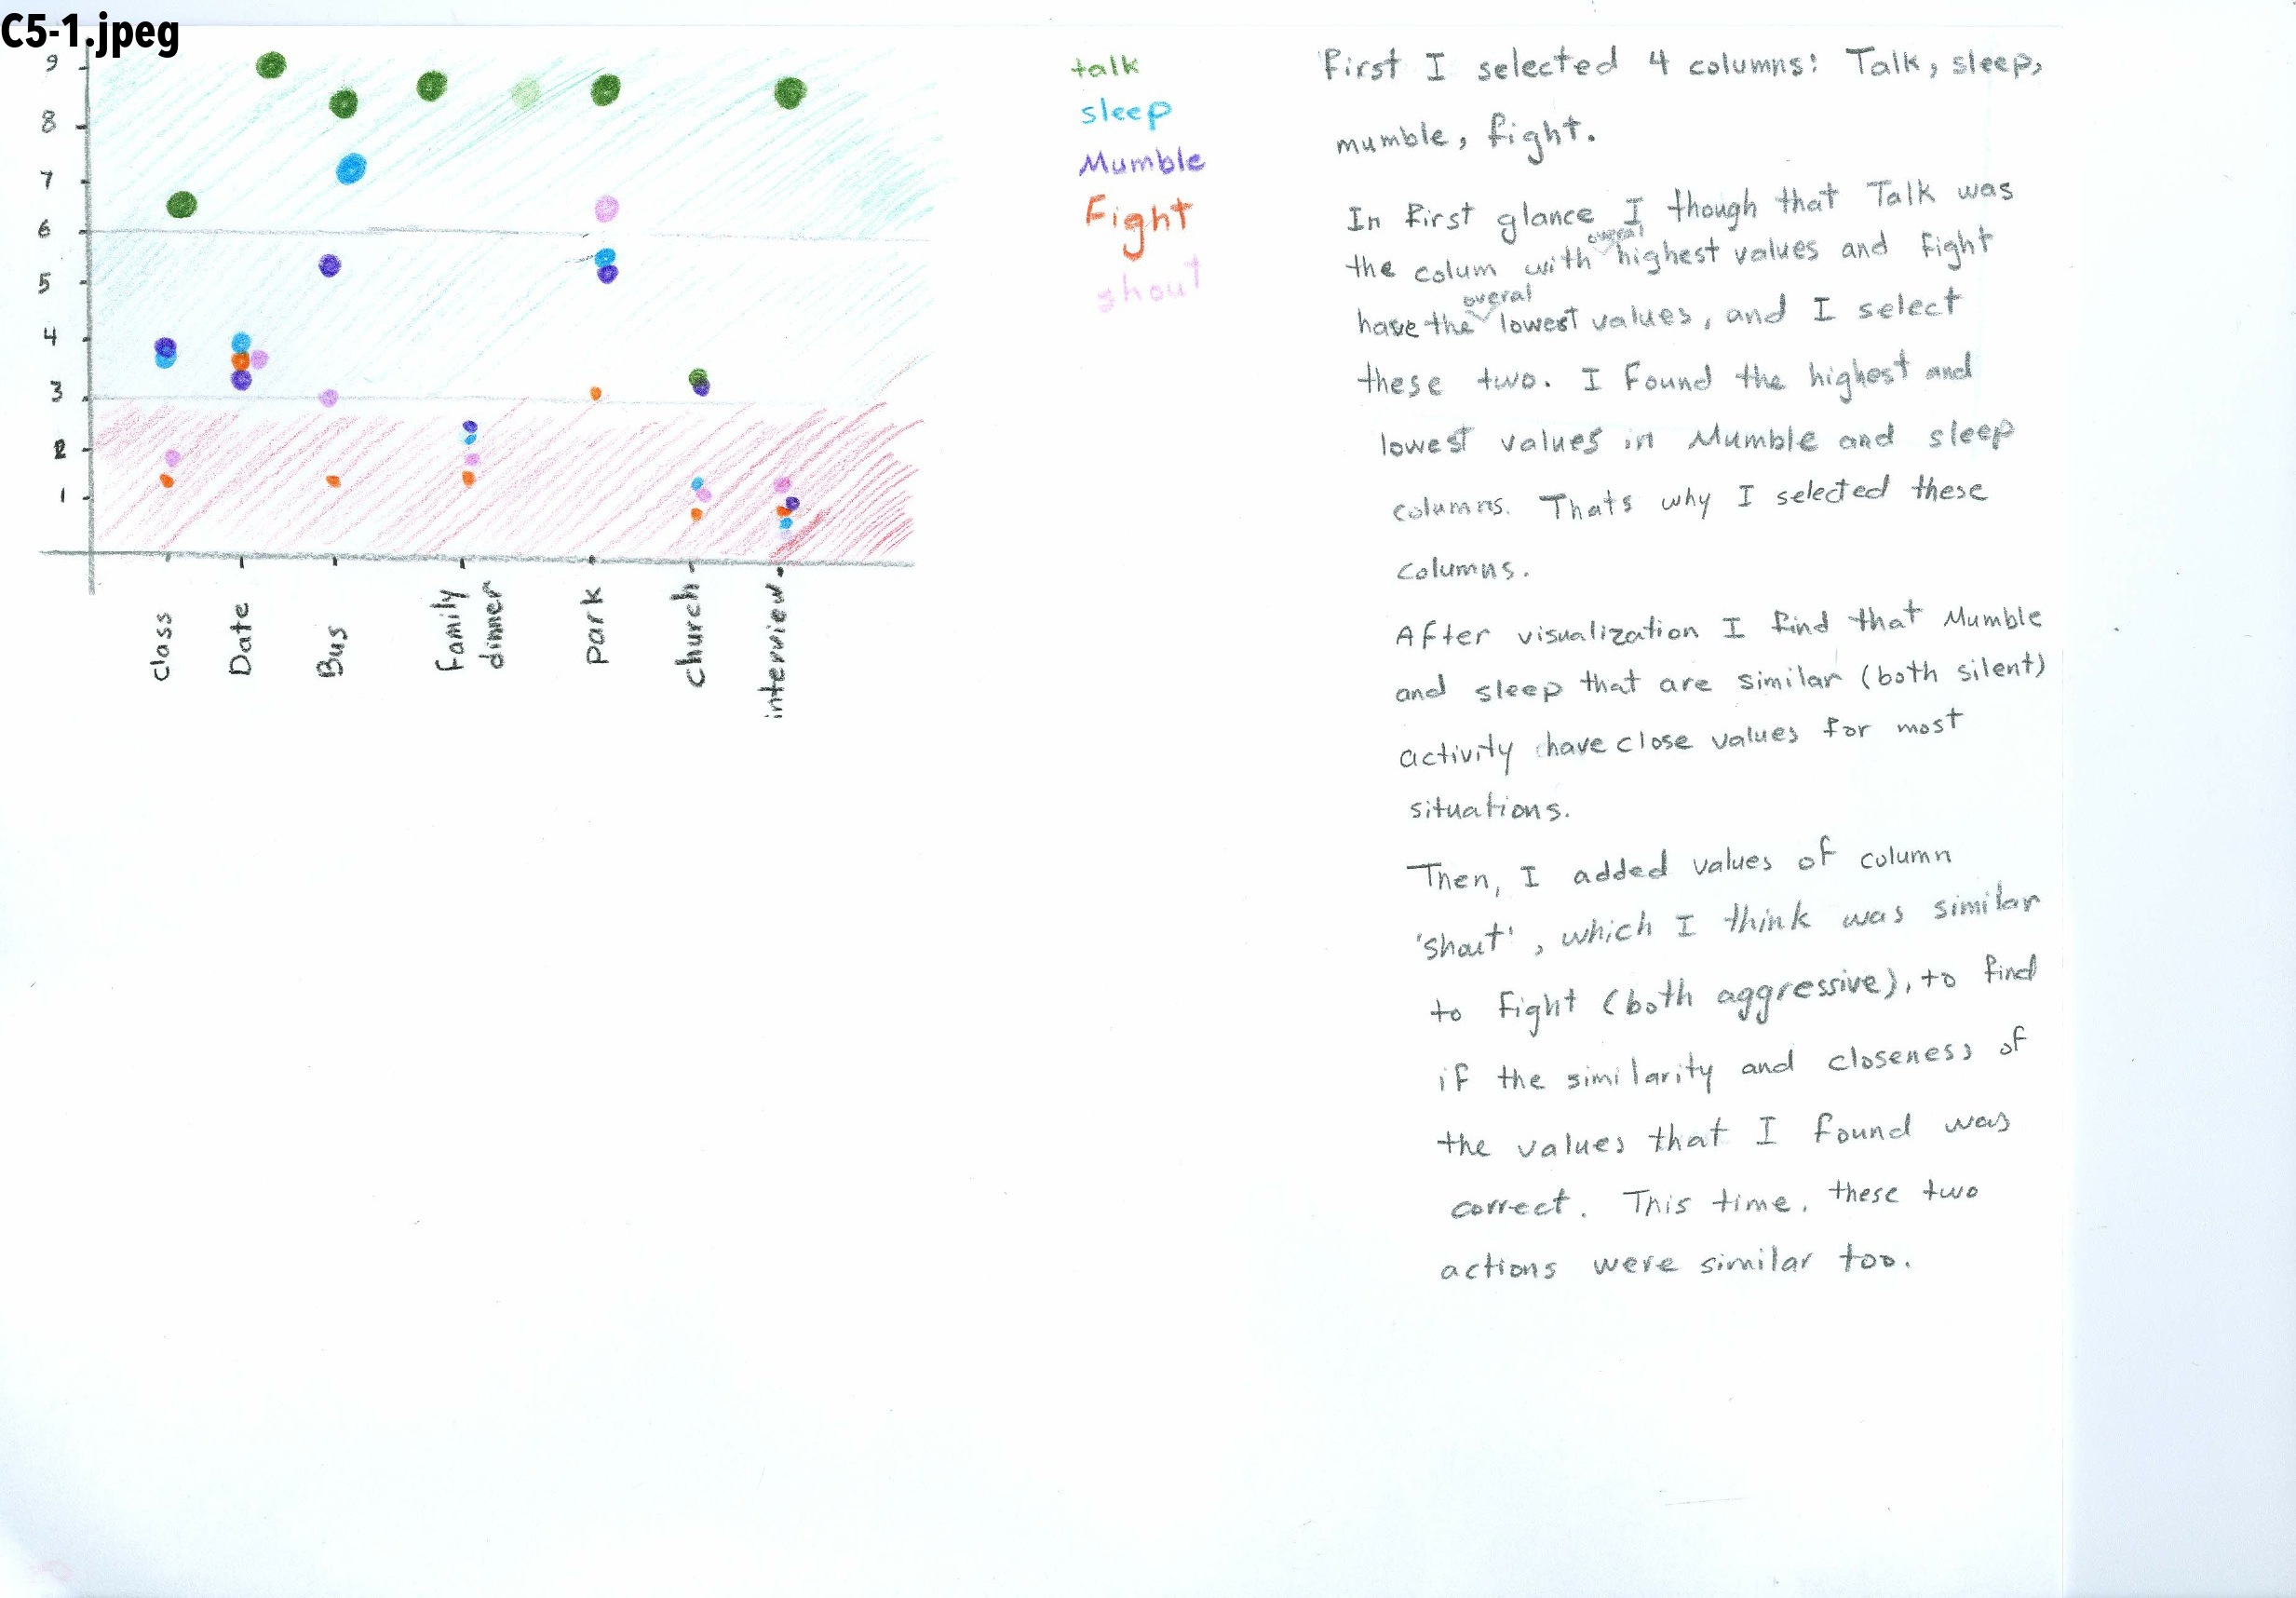 C5-1.jpeg
9
8
7
6
5
4
3
2
1
class
Date
Bus
family
dinner
park
church
interview
talk
sleep
Mumble
Fight
shout
First I selected 4 columns: Talk, sleep,
mumble, fight.
In first glance I though that Talk was
the colum with overal highest values and fight
have the overal lowest values, and I select
these two. I found the highest and
lowest values in Mumble and sleep
columns. Thats why I selected these
columns.
After visualization I find that Mumble
and sleep that are similar (both silent)
activity have close values for most
situations.
Then, I added values of column
'shout', which I think was similar
to Fight (both aggressive), to find
if the similarity and closeness of
the values that I found was
correct. This time, these two
actions were similar too.